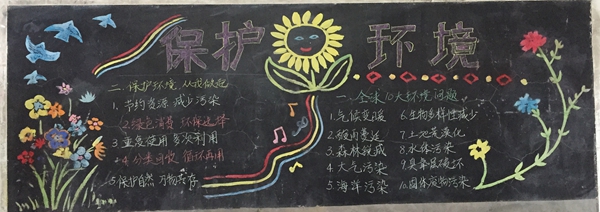 保护环境
二、保护环境,从我做起
1、节约资源 减少污染
2.绿色消费 环保选择
3.重复使用 多次利用
4.分类回收 循环再用
5.保护自然 万物共存
一、全球10大环境问题
1.气候变暖
2.酸雨蔓延
3.森林锐减
4.大气污染
5.海洋污染
6.生物多样性减少
7.土地荒漠化
8.水体污染
9.臭氧层破坏
10.固体废物污染